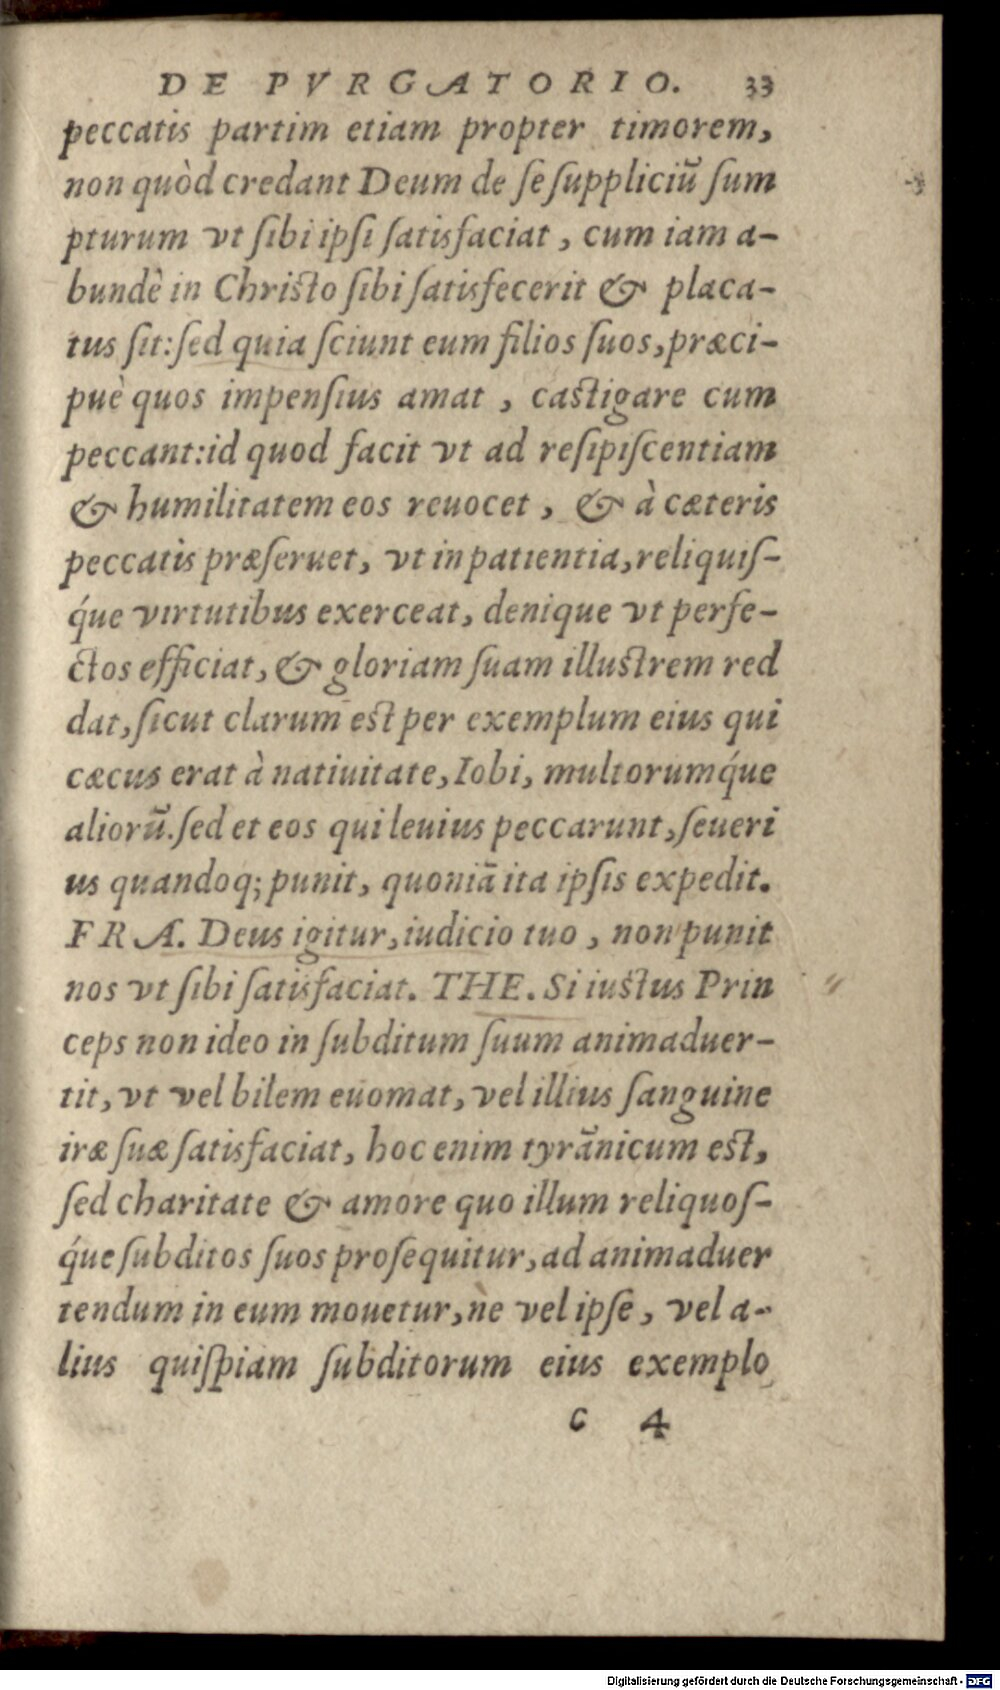 DE PVRGATORIO. 33
peccatis partim etiam propter timorem,
non quòd credant Deum de se suppliciū sum
pturum vt sibi ipsi satisfaciat, cum iam a-
bundè in Christo sibi satisfecerit & placa-
tus sit: sed quia sciunt eum filios suos, præci-
puè quos impensius amat, castigare cum
peccant: id quod facit vt ad resipiscentiam
& humilitatem eos reuocet, & à cæteris
peccatis præseruet, vt in patientia, reliquis-
q́ue virtutibus exerceat, denique vt perfe-
ctos efficiat, & gloriam suam illustrem red
dat, sicut clarum est per exemplum eius qui
cæcus erat à natiuitate, Iobi, multorumq́ue
aliorū. sed et eos qui leuius peccarunt, seueri
us quandoq; punit, quoniā ita ipsis expedit.
FRA. Deus igitur, iudicio tuo, non punit
nos vt sibi satisfaciat. THE. Si iustus Prin
ceps non ideo in subditum suum animaduer-
tit, vt vel bilem euomat, vel illius sanguine
iræ suæ satisfaciat, hoc enim tyrānicum est,
sed charitate & amore quo illum reliquos-
q́ue subditos suos prosequitur, ad animaduer
tendum in eum mouetur, ne vel ipse, vel a-
lius quispiam subditorum eius exemplo
c 4
Digitalisierung gefördert durch die Deutsche Forschungsgemeinschaft - DFG